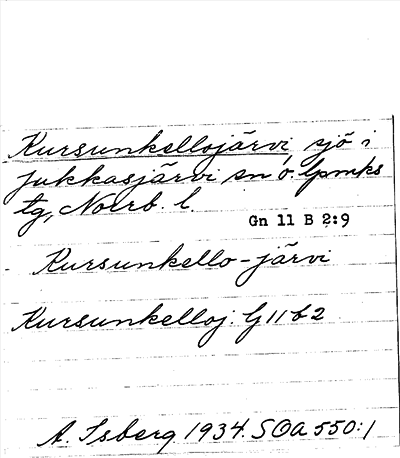 Kursunkellojärvi, sjö i
Jukkasjärvi sn o. lpmks
tg, Norrb. l.
Gn 11 B 2:9
Kursunkello-järvi
Kursunkelloj. G 11 b 2
A. Isberg 1934. SOA 550:1